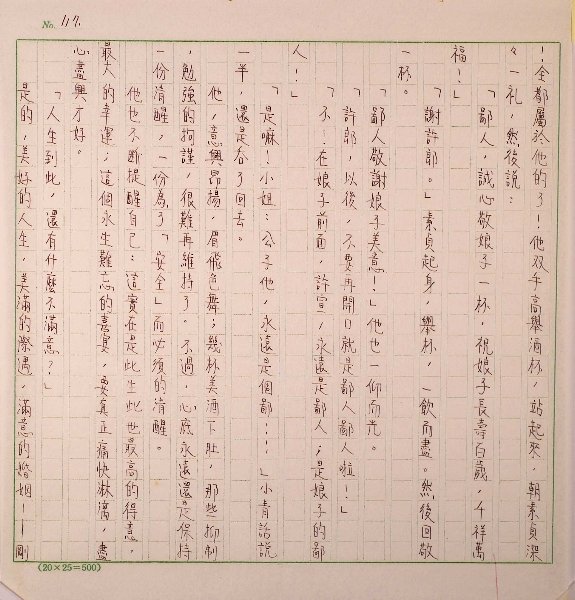 No. 117.
！全都屬於他的了！他双手高舉酒杯，站起來，朝素貞深
々一礼，然後說：
「鄙人，誠心敬娘子一杯，祝娘子長壽百歲，千祥萬
福！」
「謝許郎。」素貞起身，舉杯，一飲而盡。然後回敬
一杯。
「鄙人敬謝娘子美意！」他也一仰而光。
「許郎，以後，不要再開口就是鄙人鄙人啦！」
「不…在娘子前面，許宣，永遠是鄙人；是娘子的鄙
人！」
「是嘛！小姐：公子他，永遠是個鄙！！」小青話說
一半，還是吞了回去。
他，意興昂揚，眉飛色舞；幾杯美酒下肚，那些抑制
，勉強的拘謹，很難再維持了。不過，心底永遠還是保持
一份清醒，一份為了「安全」而必須的清醒。
他也不斷提醒自己：這實在是此生此世最高的得意，
最大的幸運；這個永生難忘的喜宴，要真正痛快淋漓，盡
心盡興才好。
「人生到此，還有什麼不滿意？」
是的，美好的人生，美滿的際遇，滿意的婚姻——剛
(20×25=500)